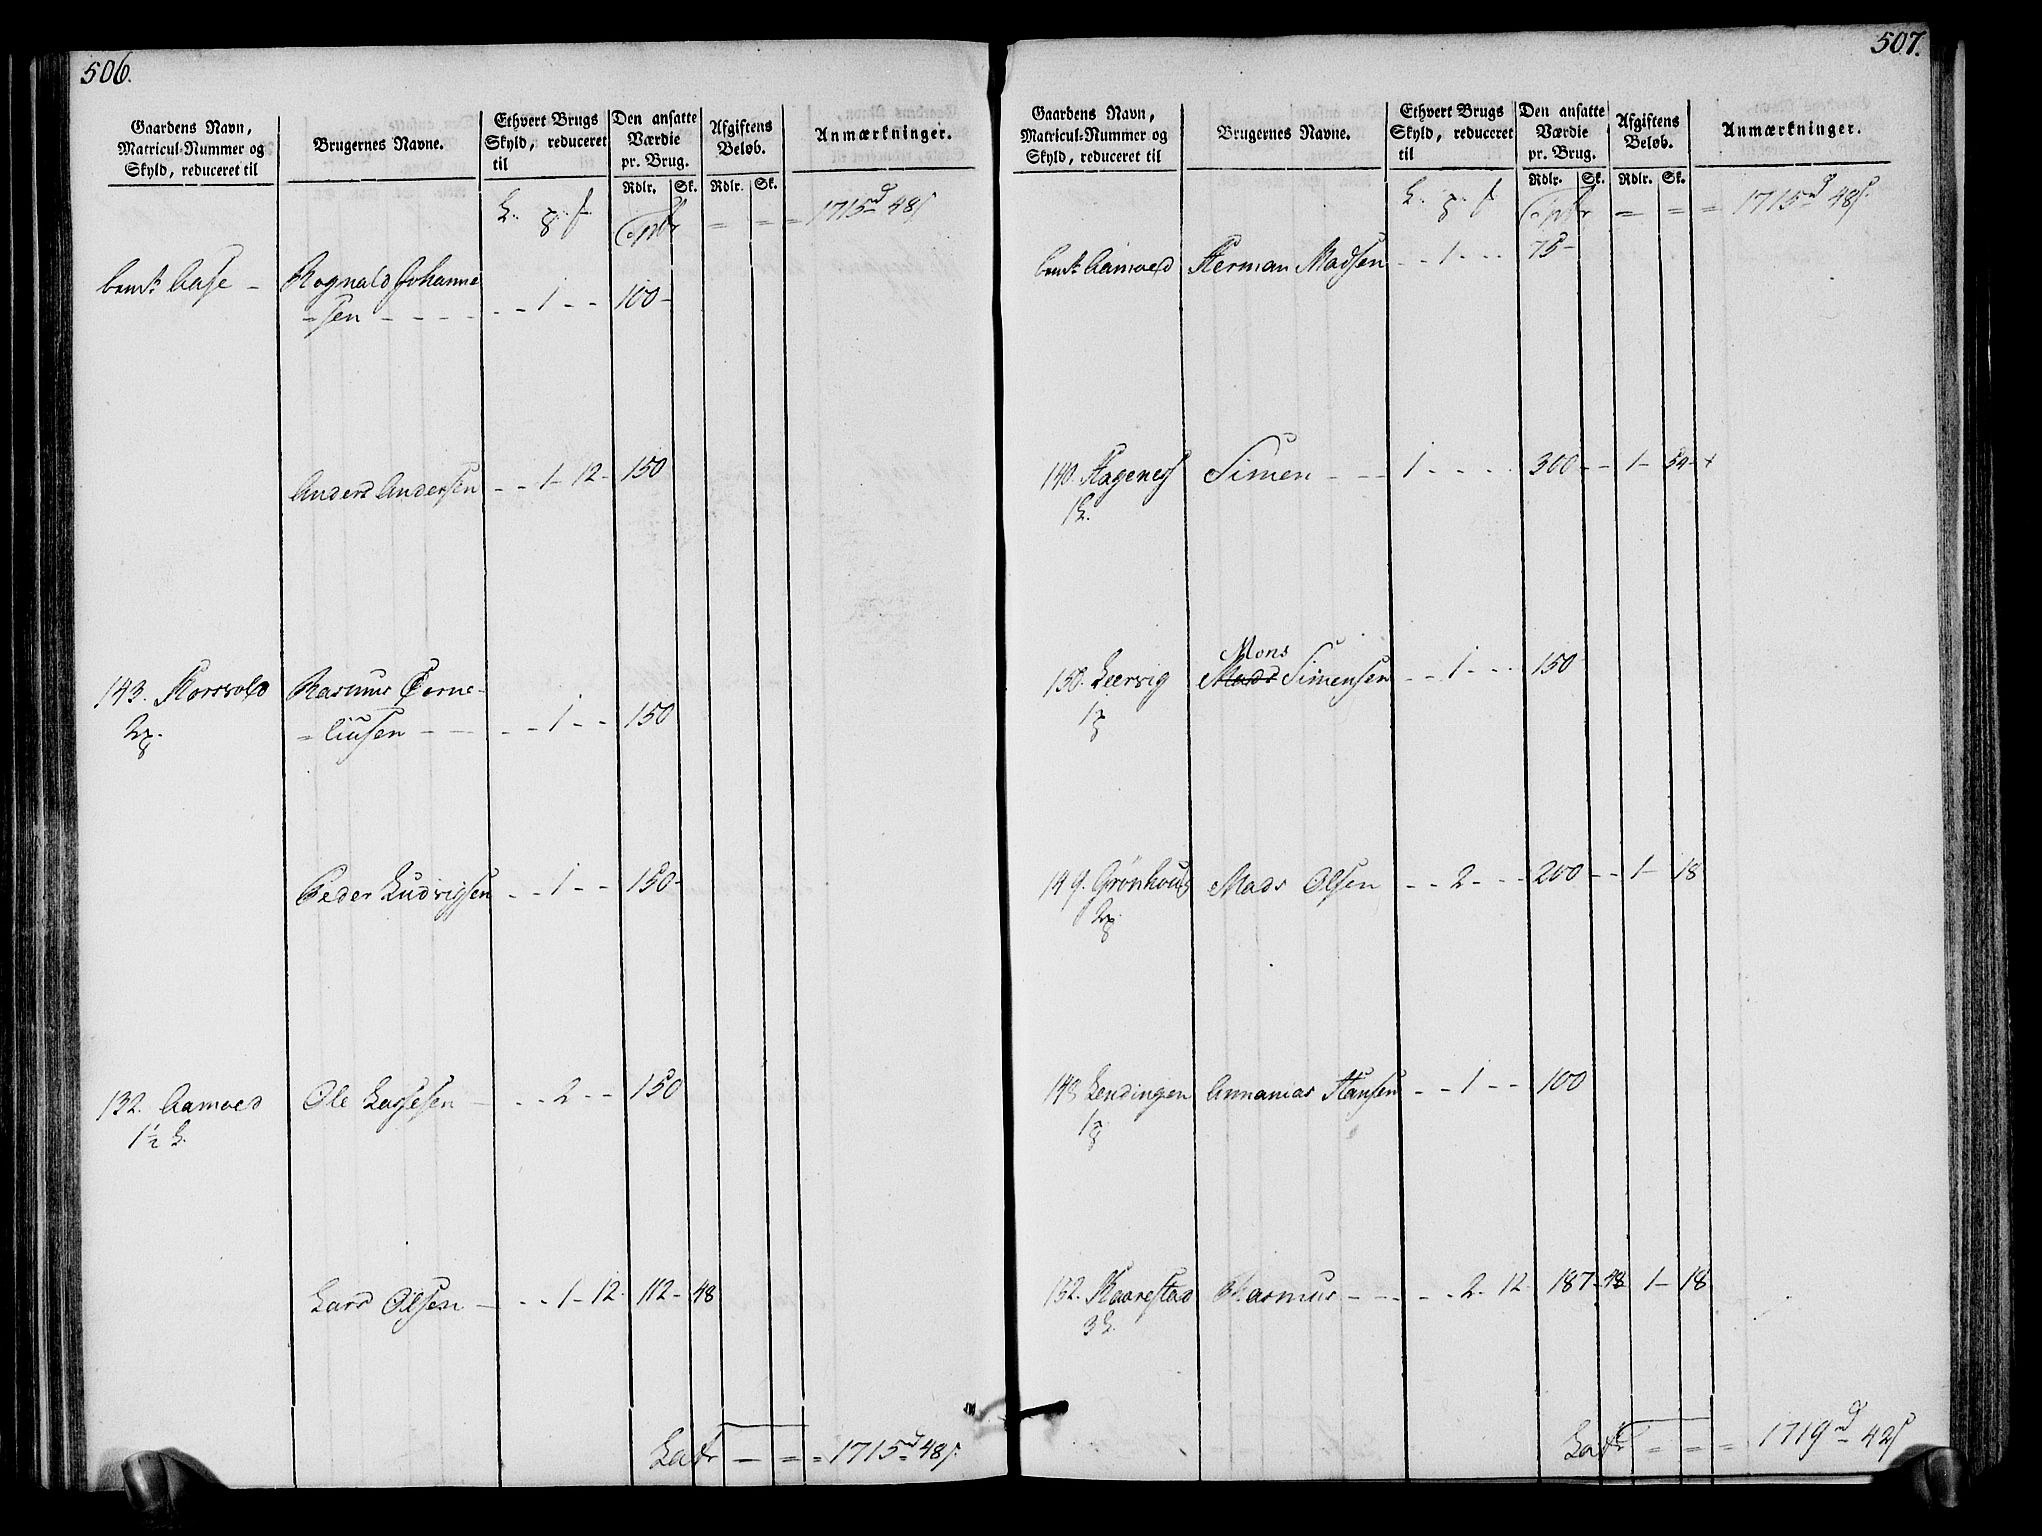 506.
Gaardens Navn,
Matricul-Nummer og
Skyld, reduceret til
Brugernes Navne.
Ethvert Brugs
Skyld, reduceret
til
Den ansatte
Værdie
pr. Brug.
Rdlr. Sk.
Afgiftens
Beløb.
Rdlr. Sk.
Anmærkninger.
L. 1715 48
Aase - Rognald Johanne
-sen - - - - - - 1 - - 100 -
Anders Andersen - - 1 - 12 - 150
143. Korsvold Rasmus Corne-
2 -liusen - - - - 1 - - 150
Peder Ludvigsen - - 1 - - 150 -
132. Aamoed Ole Lassesen - - - 2 - - 150
1½ L.
Lars Olsen - - - 1 - 12 - 112 - 48
Latr - = = 1715 48
507.
Gaardens Navn,
Matricul-Nummer og
Skyld, reduceret til
Brugernes Navne.
Ethvert Brugs
Skyld, reduceret
til
Den ansatte
Værdie
pr. Brug.
Rdlr. Sk.
Afgiftens
Beløb.
Rdlr. Sk.
Anmærkninger.
L. = = = 1715 48
Aamoed Herman Madsen - - 1 - - - 75 -
140. Hagenes Simen - - - 1 - - - - 300 - - 1 - 54 -
1 L.
Mons
150. Leervig Mads Simensen - - 1 - - - 150
1
149. Grønhoug Mads Olsen - - 2 - - - 200 - - 1 - 18
2
Lendingen Annanias Hansen - - 1 - - 100
1
152. Kaarestad Rasmus - - - - - 2 - 12 187 - 48 1 - 18
3 L.
Latr = = = 1719 42